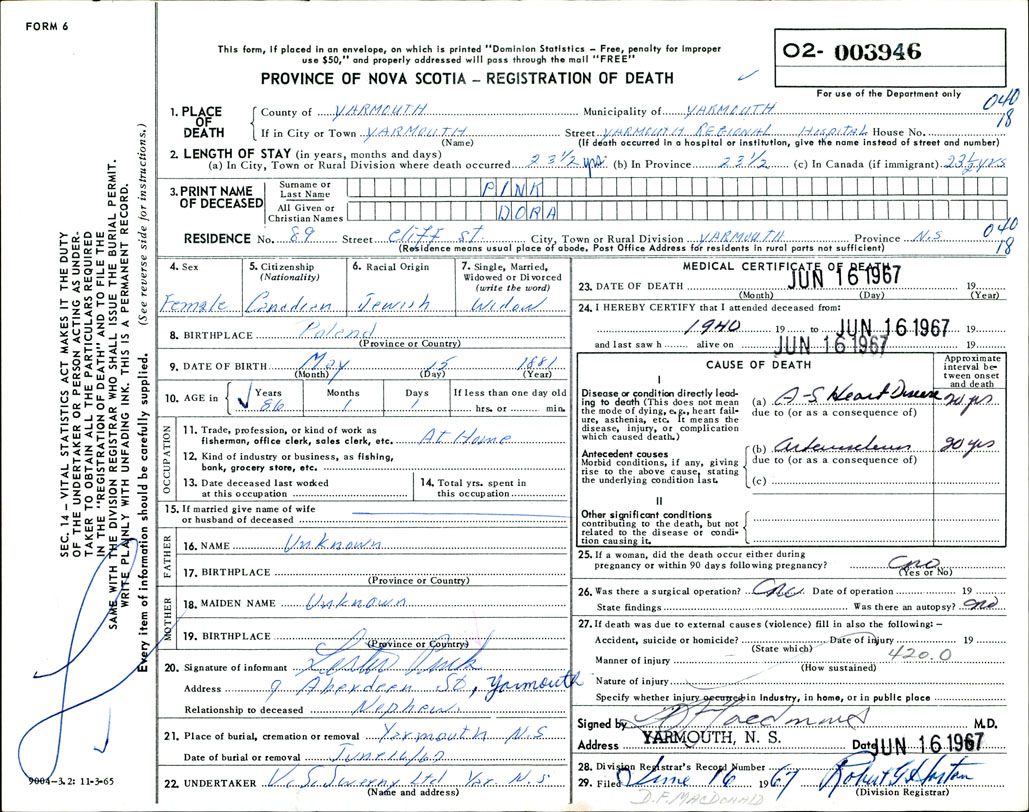 FORM 6
This form, if placed in an envelope, on which is printed "Dominion Statistics – Free, penalty for improper
use $50," and properly addressed will pass through the mail "FREE"
PROVINCE OF NOVA SCOTIA – REGISTRATION OF DEATH
O2- 003946
For use of the Department only
040
18
SEC. 14 – VITAL STATISTICS ACT MAKES IT THE DUTY
OF THE UNDERTAKER OR PERSON ACTING AS UNDER-
TAKER TO OBTAIN ALL THE PARTICULARS REQUIRED
IN THE "REGISTRATION OF DEATH" AND TO FILE THE
SAME WITH THE DIVISION REGISTRAR WHO SHALL ISSUE THE BURIAL PERMIT.
WRITE PLAINLY WITH UNFADING INK. THIS IS A PERMANENT RECORD.
Every item of information should be carefully supplied. (See reverse side for instructions.)
1. PLACE OF DEATH
County of YARMOUTH Municipality of YARMOUTH
If in City or Town YARMOUTH Street YARMOUTH REGIONAL HOSPITAL House No.
(Name) (If death occurred in a hospital or institution, give the name instead of street and number)
2. LENGTH OF STAY (in years, months and days)
(a) In City, Town or Rural Division where death occurred 23 1/2 yrs. (b) In Province 23 1/2 (c) In Canada (if immigrant) 23 1/2 yrs
3. PRINT NAME OF DECEASED
Surname or Last Name PINK
All Given or Christian Names DORA
040
18
RESIDENCE No. 89 Street Cliff St. City, Town or Rural Division YARMOUTH Province N.S
(Residence means usual place of abode. Post Office Address for residents in rural parts not sufficient)
4. Sex
Female
5. Citizenship
(Nationality)
Canadian
6. Racial Origin
Jewish
7. Single, Married,
Widowed or Divorced
(write the word)
Widow
8. BIRTHPLACE Poland
(Province or Country)
9. DATE OF BIRTH May 15 1881
(Month) (Day) (Year)
10. AGE in Years 86 Months 1 Days 1 If less than one day old
hrs. or min.
OCCUPATION
11. Trade, profession, or kind of work as
fisherman, office clerk, sales clerk, etc. At Home
12. Kind of industry or business, as fishing,
bank, grocery store, etc.
13. Date deceased last worked
at this occupation
14. Total yrs. spent in
this occupation
15. If married give name of wife
or husband of deceased
FATHER
16. NAME Unknown
17. BIRTHPLACE
(Province or Country)
MOTHER
18. MAIDEN NAME Unknown
19. BIRTHPLACE
(Province or Country)
20. Signature of informant Lester Pink
Address 9 Aberdeen St, Yarmouth
Relationship to deceased Nephew
21. Place of burial, cremation or removal Yarmouth N.S
Date of burial or removal June 16/67
22. UNDERTAKER V. S. Sweeny Ltd Yar. N.S
(Name and address)
9004-3.2: 11-3-65
MEDICAL CERTIFICATE OF DEATH
23. DATE OF DEATH JUN 16 1967 19
(Month) (Day) (Year)
24. I HEREBY CERTIFY that I attended deceased from:
1940 19 to JUN 16 1967 19
and last saw h alive on JUN 16 1967 19
CAUSE OF DEATH
Approximate
interval be-
tween onset
and death
I
Disease or condition directly lead-
ing to death (This does not mean
the mode of dying, e.g., heart fail-
ure, asthenia, etc. It means the
disease, injury, or complication
which caused death.)
(a) A-S Heart Disease 20 yrs
due to (or as a consequence of)
Antecedent causes
Morbid conditions, if any, giving
rise to the above cause, stating
the underlying condition last.
(b) 20 yrs
due to (or as a consequence of)
(c)
II
Other significant conditions
contributing to the death, but not
related to the disease or condi-
tion causing it.
25. If a woman, did the death occur either during
pregnancy or within 90 days following pregnancy? no
(Yes or No)
26. Was there a surgical operation? no Date of operation 19
State findings Was there an autopsy? no
27. If death was due to external causes (violence) fill in also the following: –
Accident, suicide or homicide? Date of injury 19
(State which)
420.0
Manner of injury
(How sustained)
Nature of injury
Specify whether injury occurred in industry, in home, or in public place
Signed by M.D.
Address YARMOUTH, N. S. Dated JUN 16 1967
28. Division Registrar's Record Number
29. Filed June 16 1967 Robert G.
(Division Registrar)
D.F. MACDONALD